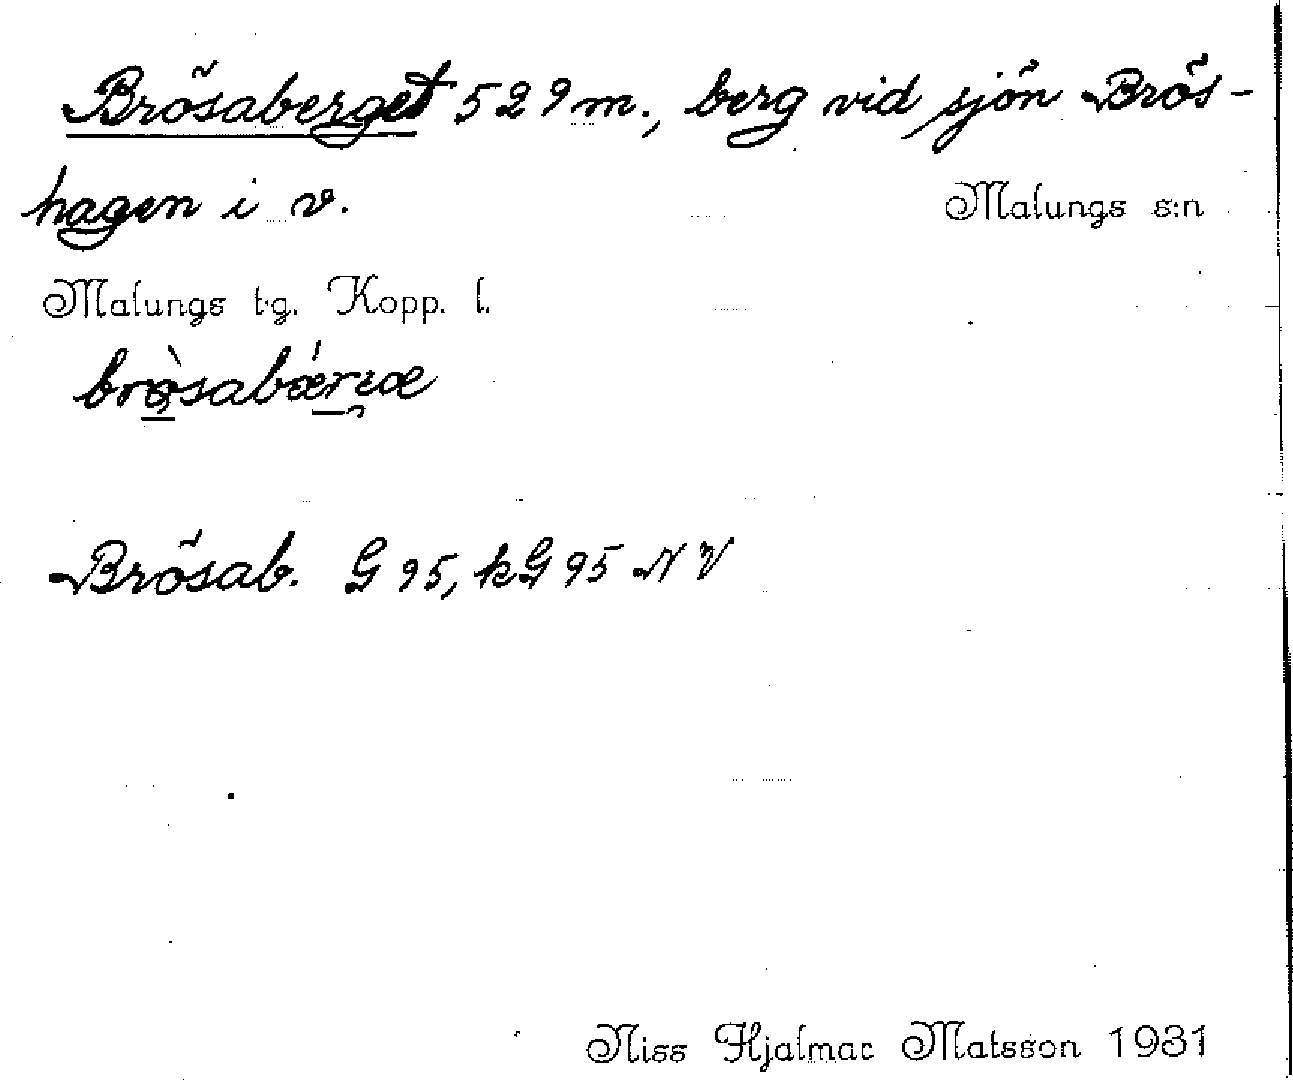 Brösaberget 529 m., berg vid sjön Brös-
hagen i v.
Malungs s:n
Malungs tg. Kopp. l.
brò̱sabǽrɪæ
Brösab. G 95, kG 95 NV
Niss Hjalmar Matsson 1931